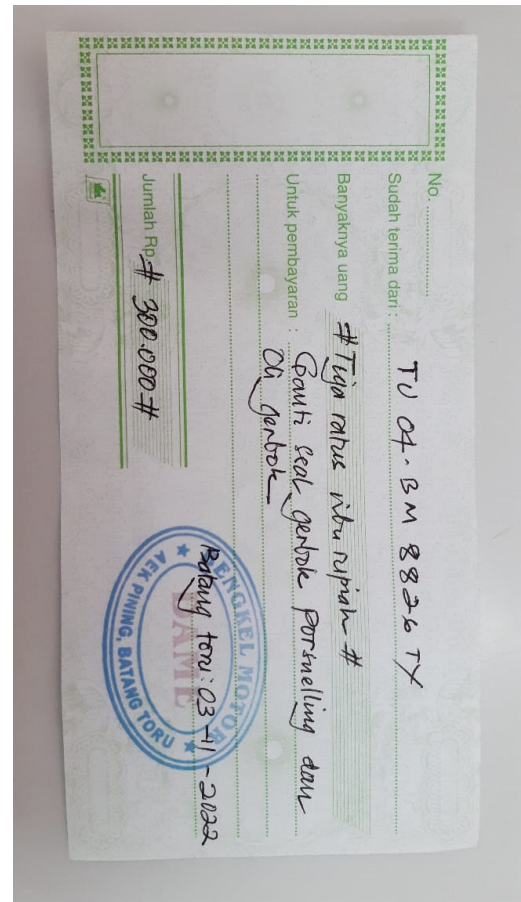 No.
Sudah terima dari : TU 04. BM 8826 TY
Banyaknya uang # Tiga ratus ribu rupiah #
Untuk pembayaran : Ganti seal gerbok porsnelling dan
Oli gerbok
Batang toru: 03-11-2022
Jumlah Rp. # 300.000 #
BENGKEL MOTOR
DAME
AEK PINING, BATANG TORU